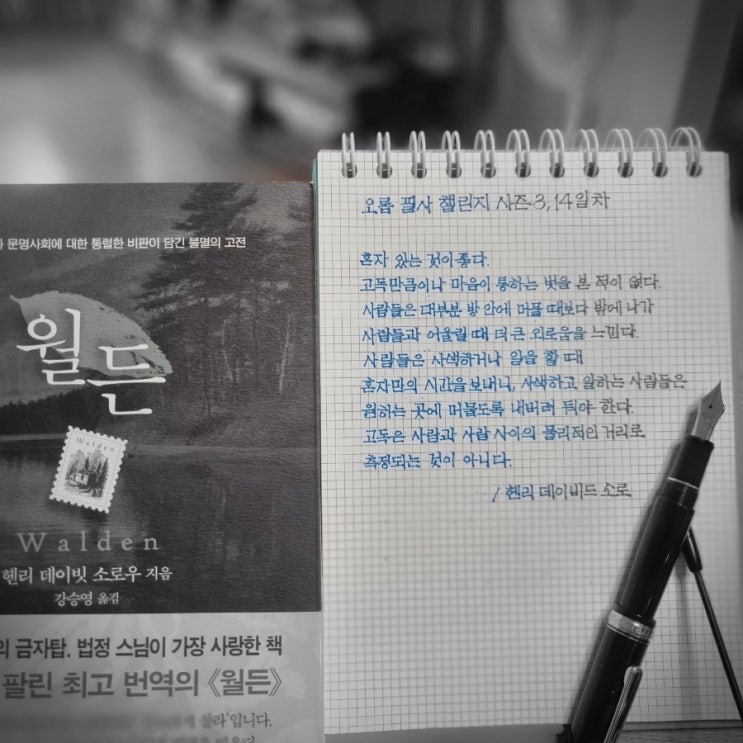 문명사회에 대한 통렬한 비판이 담긴 불멸의 고전
월든
Walden
Walden
헨리 데이빗 소로우 지음
강승영 옮김
의 금자탑. 법정 스님이 가장 사랑한 책
팔린 최고 번역의 《월든》
살라'입니다.
오롬 필사 챌린지 시즌-3, 14일차
혼자 있는 것이 좋다.
고독만큼이나 마음이 통하는 벗을 본 적이 없다.
사람들은 대부분 방 안에 머물 때보다 밖에 나가
사람들과 어울릴 때 더 큰 외로움을 느낀다.
사람들은 사색하거나 일을 할 때
혼자만의 시간을 보내니, 사색하고 일하는 사람들은
원하는 곳에 머물도록 내버려 둬야 한다.
고독은 사람과 사람 사이의 물리적인 거리로
측정되는 것이 아니다.
/ 헨리 데이비드 소로